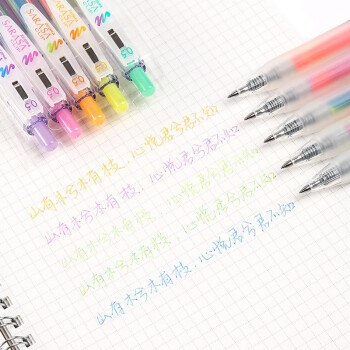 SARASA
SARASA
山有木兮木有枝，心悦君兮君不知
山有木兮木有枝，心悦君兮君不知
山有木兮木有枝，心悦君兮君不知
山有木兮木有枝，心悦君兮君不知
山有木兮木有枝，心悦君兮君不知